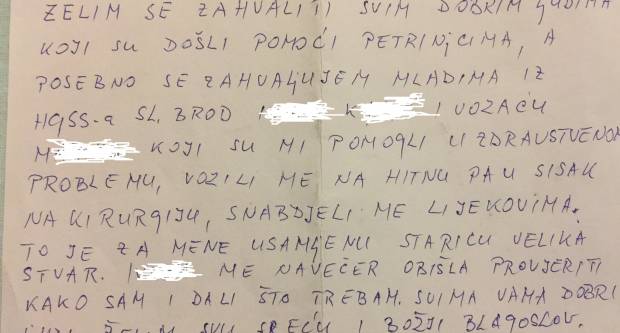 ŽELIM SE ZAHVALITI SVIM DOBRIM LJUDIMA
KOJI SU DOŠLI POMOĆI PETRINJCIMA, A
POSEBNO SE ZAHVALJUJEM MLADIMA IZ
HGSS-a SL. BROD I VOZAČU
M KOJI SU MI POMOGLI U ZDRAVSTVENOM
PROBLEMU, VOZILI ME NA HITNU PA U SISAK
NA KIRURGIJU, SNABDJELI ME LIJEKOVIMA.
TO JE ZA MENE USAMLJENU STARICU VELIKA
STVAR. ME NAVEČER OBIŠLA PROVJERITI
KAKO SAM I DALI ŠTO TREBAM. SVIMA VAMA DOBRI
ŽELIM SVU SREĆU I BOŽJI BLAGOSLOV.